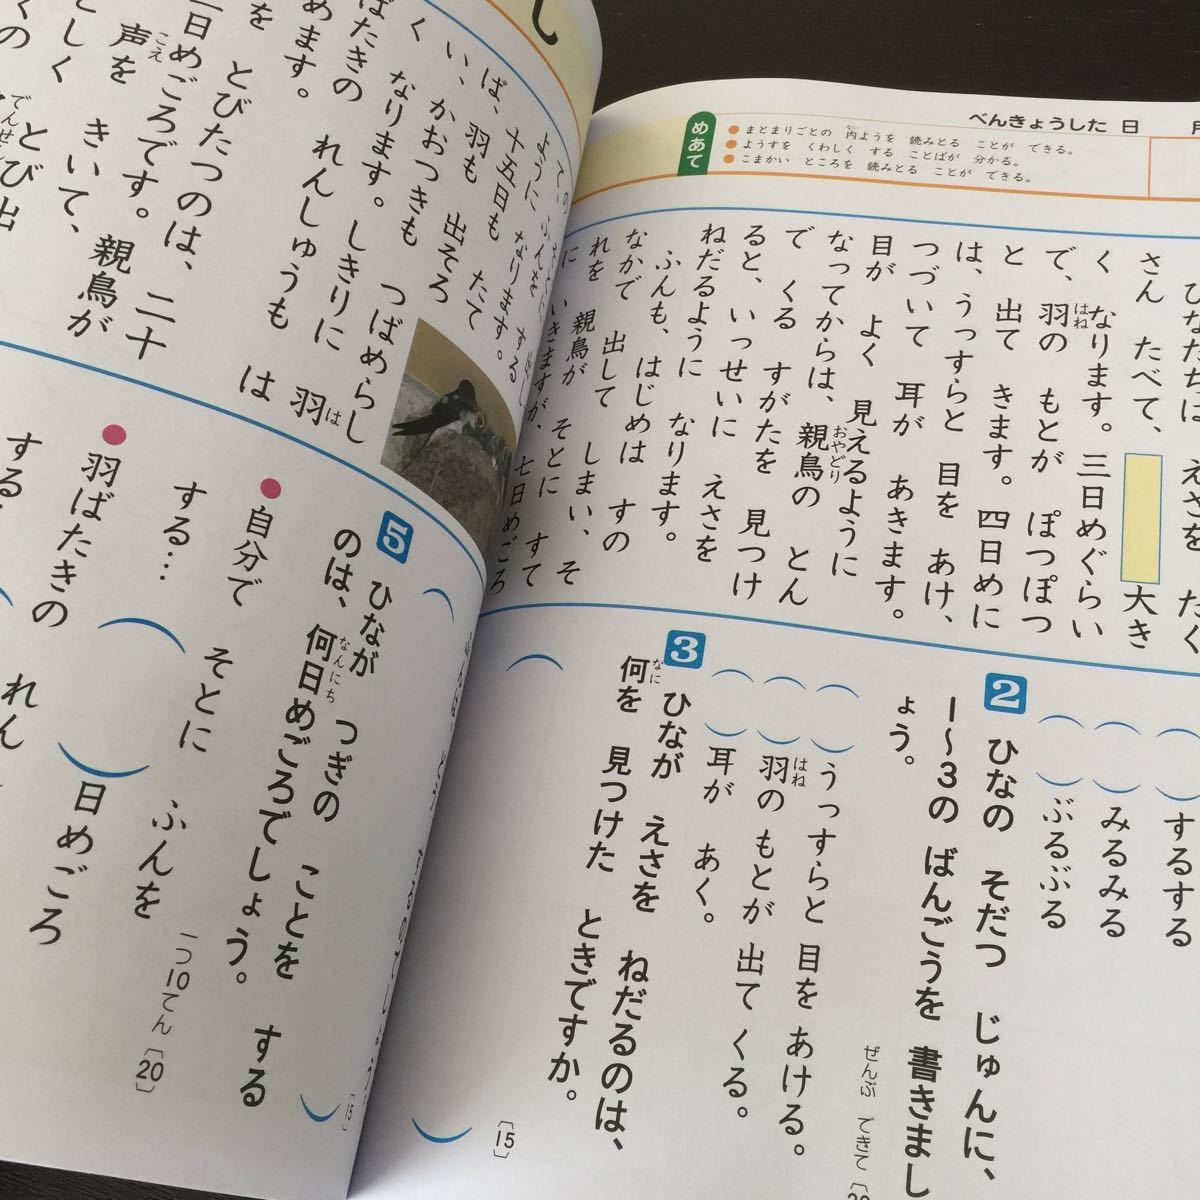 べんきょうした 日
月
めあて
●まとまりごとの 内ようを 読みとる ことが できる。
●ようすを くわしく する ことばが 分かる。
●こまかい ところを 読みとる ことが できる。
ひなたちは えさを たく
さん たべて、 大き
く なります。三日めぐらい
で、羽の もとが ぽつぽつ
と 出て きます。四日めに
は、うっすらと 目を あけ、
つづいて 耳が あきます。
目が よく 見えるように
なってからは、親鳥の とん
で くる すがたを 見つけ
ると、いっせいに えさを
ねだるように なります。
ふんも、はじめは すの
なかで 出して しまい、そ
れを 親鳥が そとに すて
に いきますが、七日めごろ
ように なります。
十五日も たて
ば、羽も 出そろ
い、かおつきも つばめらし
く なります。しきりに 羽
ばたきの れんしゅうも は
めます。
とびたつのは、二十
日めごろです。親鳥が
声を きいて、
するする
みるみる
ぶるぶる
2 ひなの そだつ じゅんに、
1〜3の ばんごうを 書きまし
ょう。
ぜんぶ できて
うっすらと 目を あける。
羽の もとが 出て くる。
耳が あく。
3 ひなが えさを ねだるのは、
何を 見つけた ときですか。
[15]
[15]
5 ひなが つぎの ことを する
のは、何日めごろでしょう。
一つ10てん [20]
●自分で そとに ふんを
する…
日めごろ
●羽ばたきの れん
する…